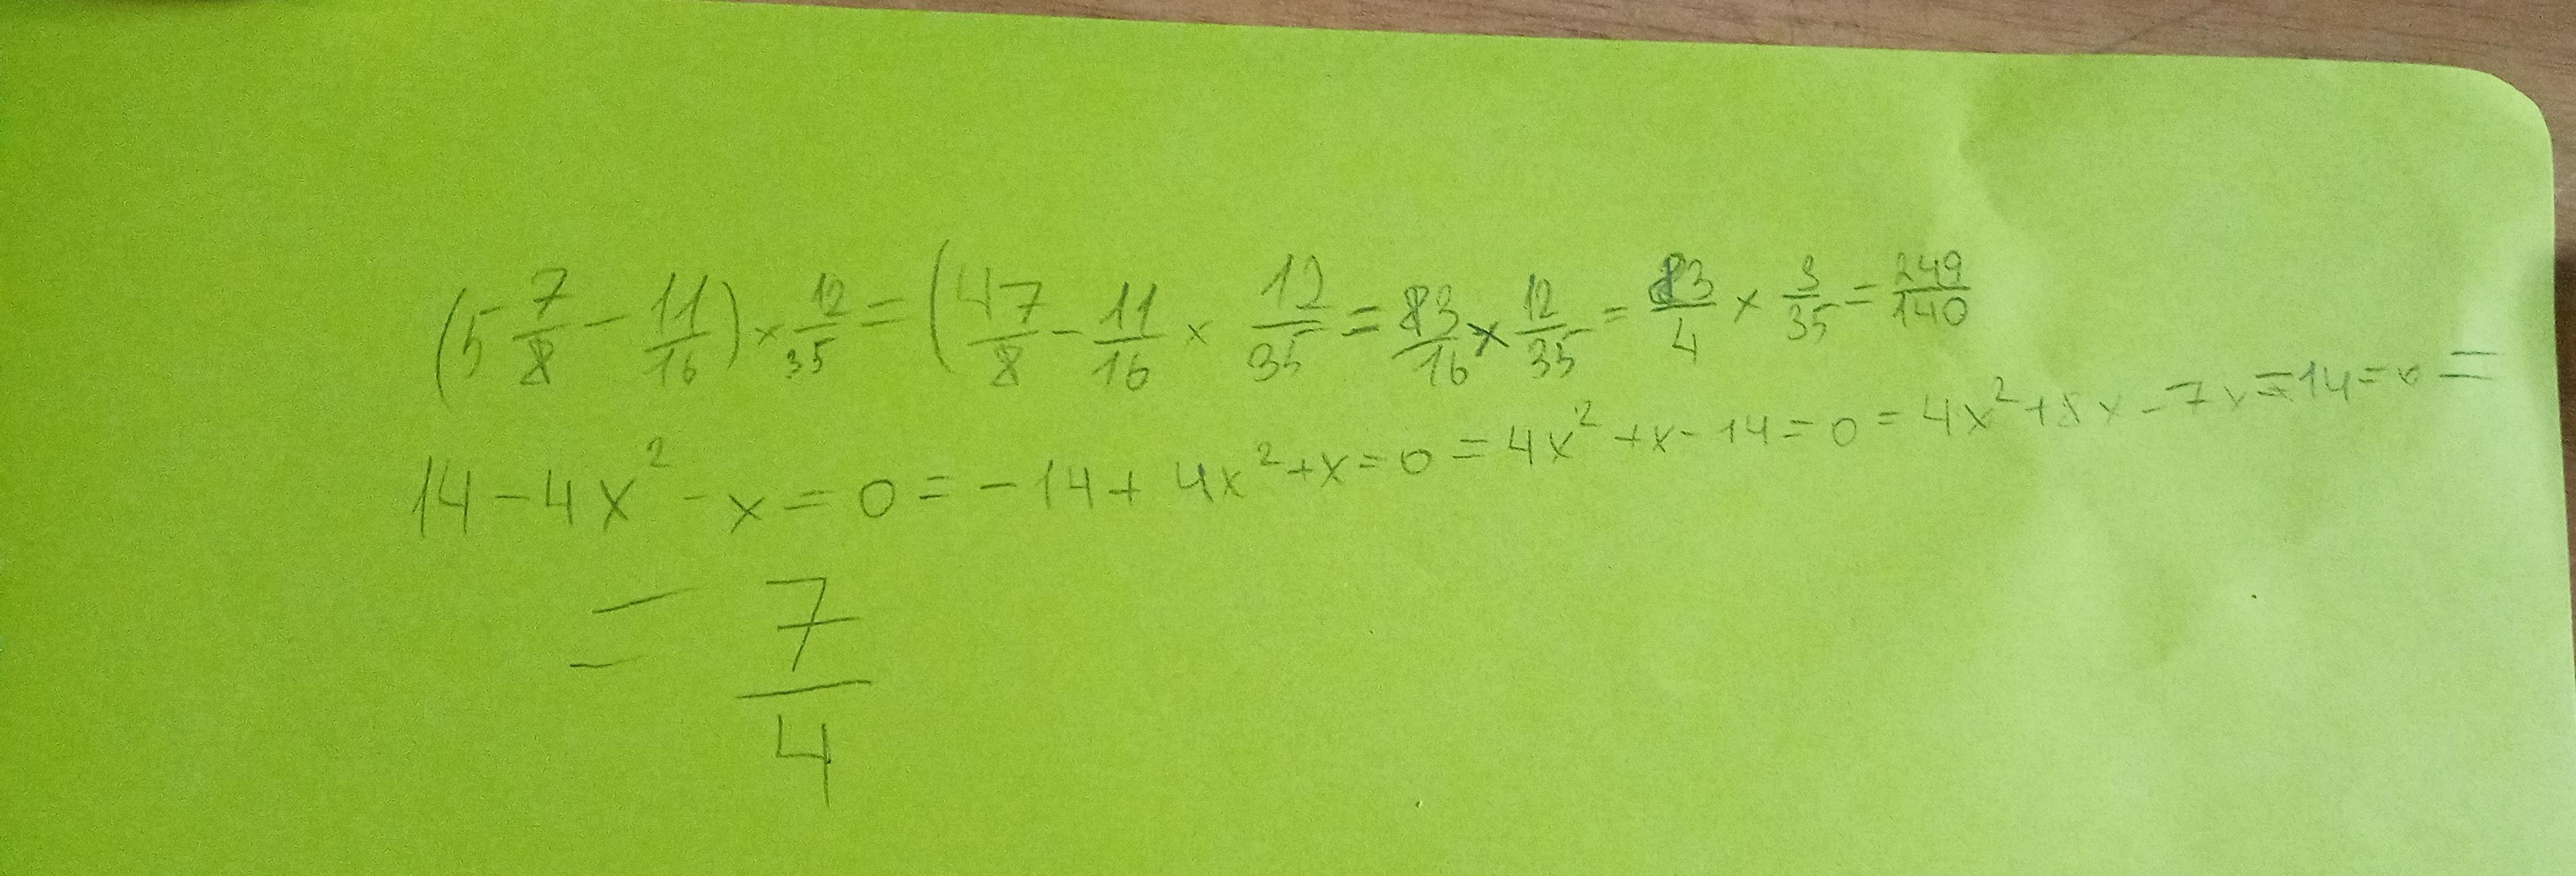 (5 7/8 - 11/16) × 12/35 = (47/8 - 11/16 × 12/35 = 83/16 × 12/35 = 83/4 × 3/35 = 249/140
14 - 4x² - x = 0 = -14 + 4x² + x = 0 = 4x² + x - 14 = 0 = 4x² + 8x - 7x - 14 = 0 =
= 7/4